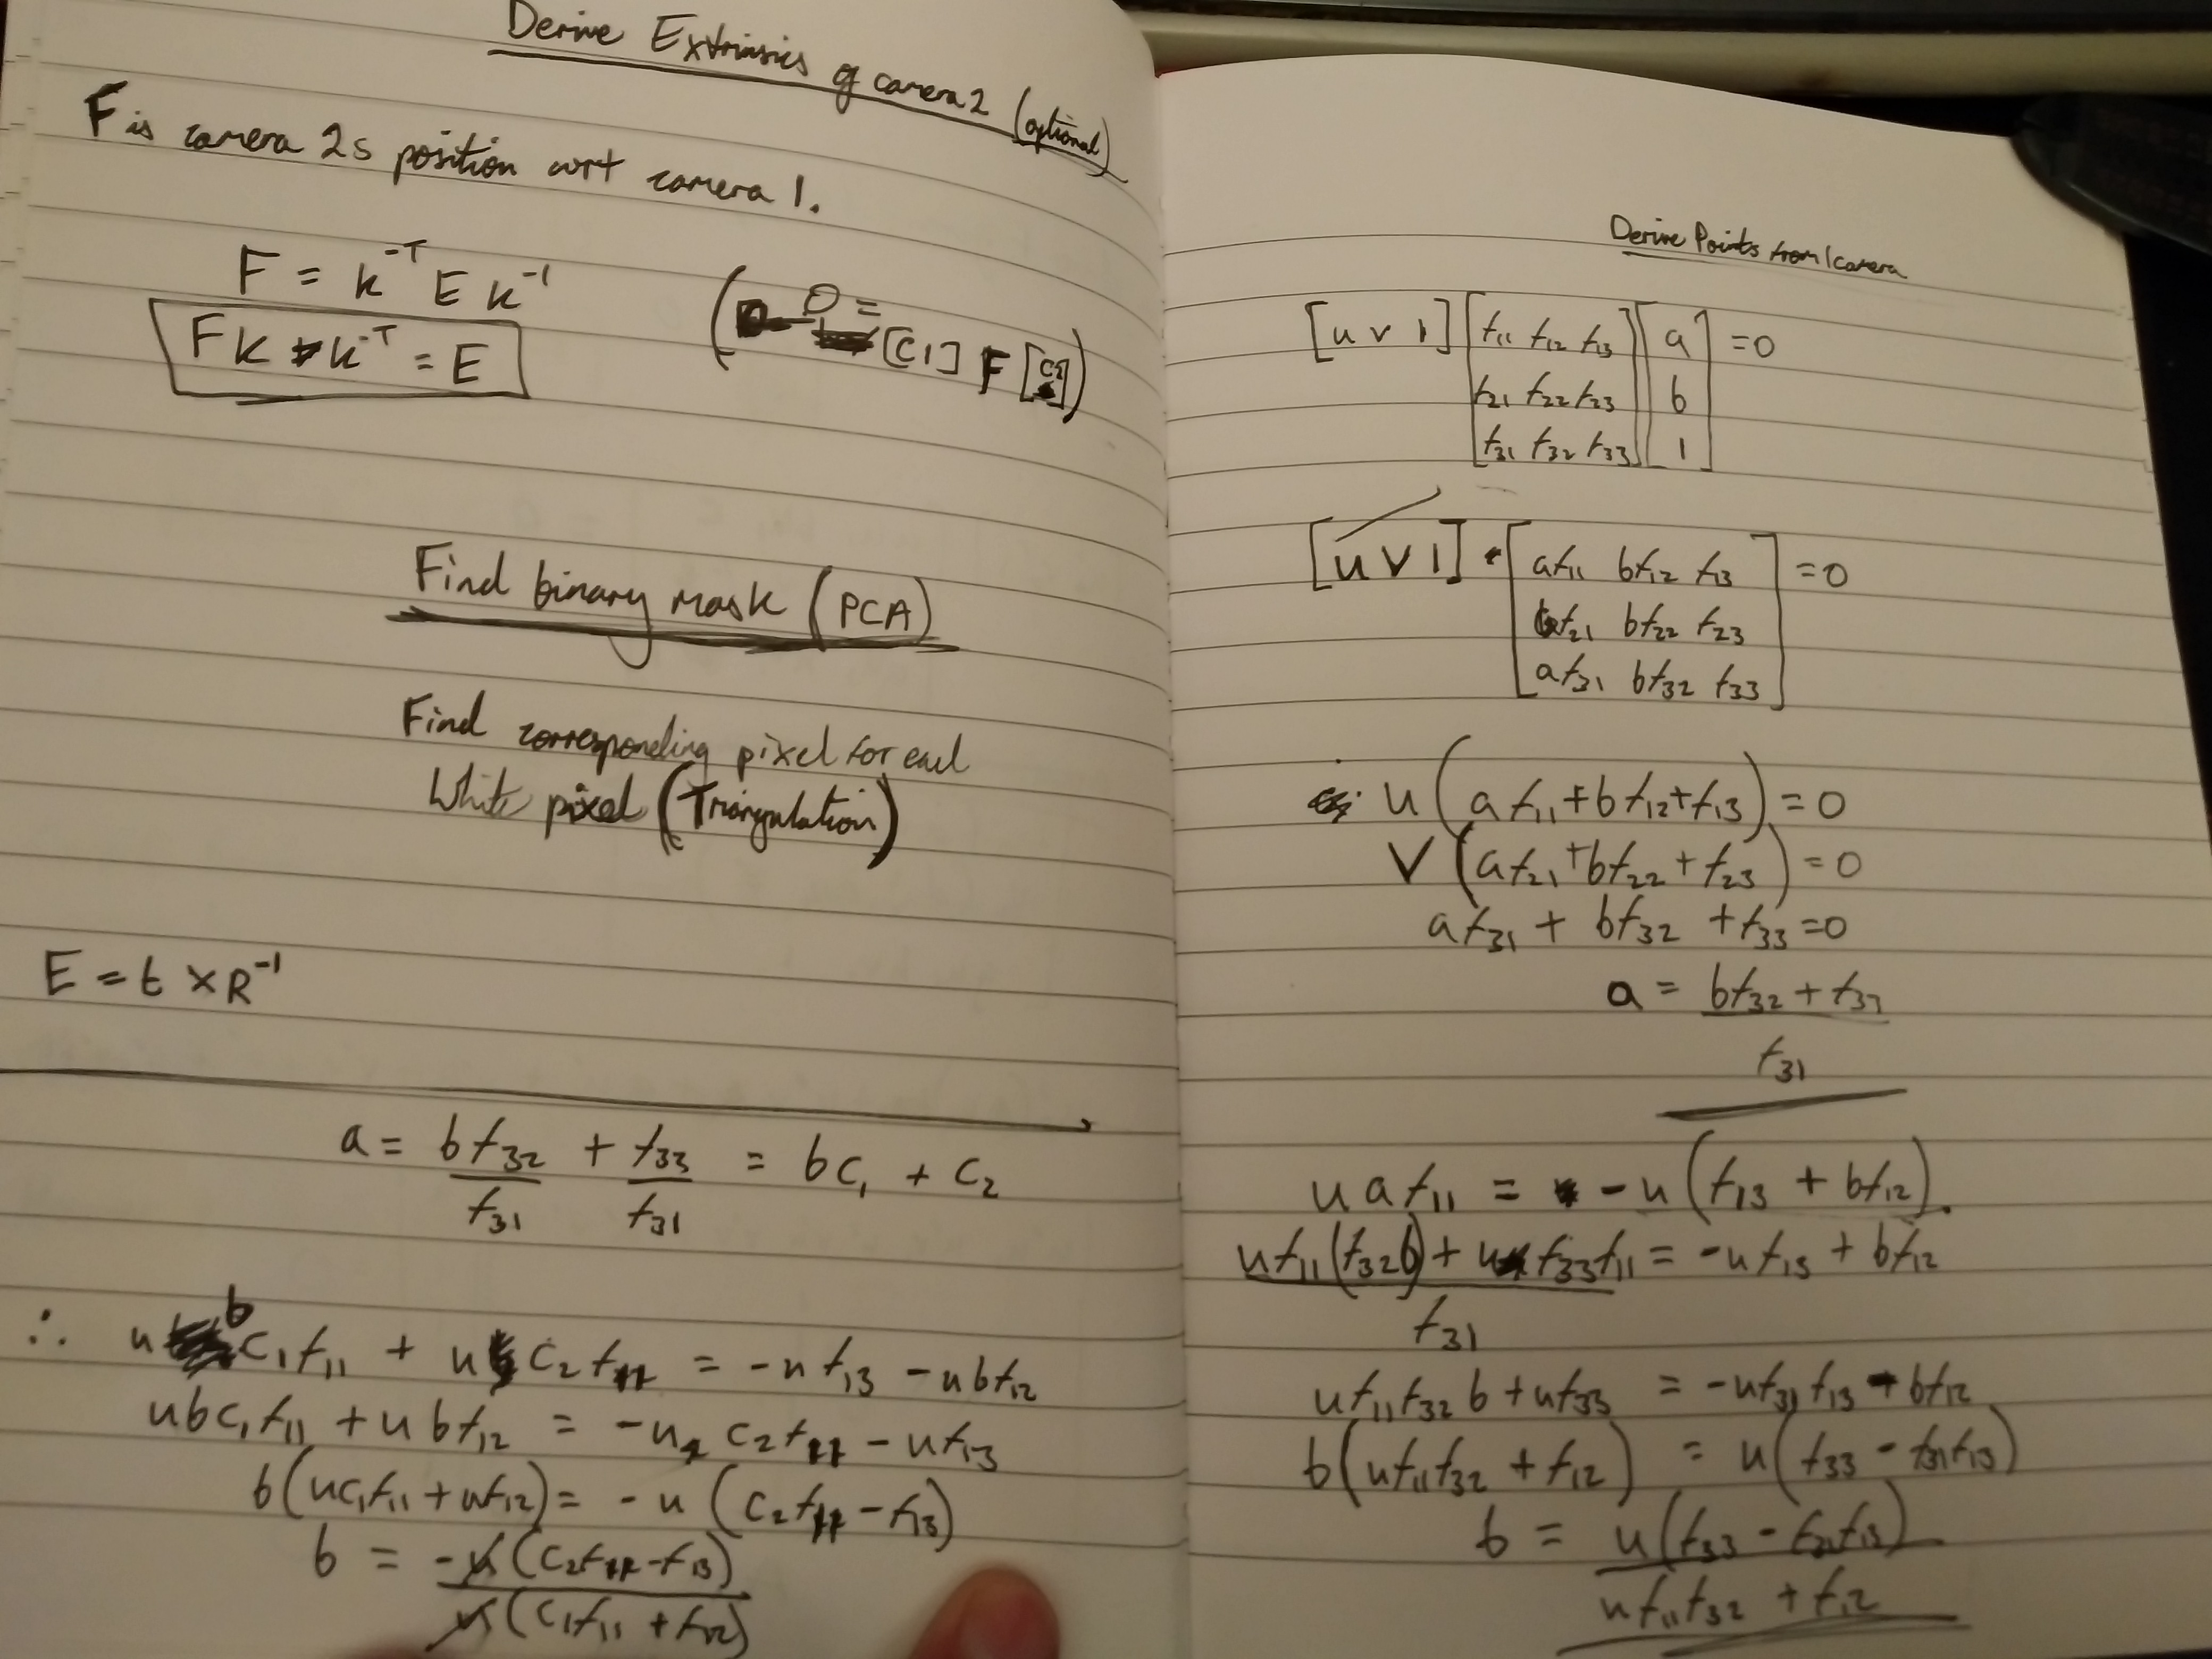 Derive Extrinsics of camera 2 (optional)
F is camera 2s position wrt camera 1.
F = k^-T E k^-1
(0 = [C1] F [C2])
F k k^-T = E
Find binary mask (PCA)
Find corresponding pixel for each
White pixel (Triangulation)
E = t × R^-1
a = bf32/f31 + f33/f31 = bc1 + c2
∴ u b c1f11 + u c2f11 = -uf13 - ubf12
ubc1f11 + ubf12 = -u c2f11 - uf13
b(uc1f11 + uf12) = -u (c2f11 - f13)
b = -u(c2f11 - f13) / u(c1f11 + f12)
Derive Points from 1 camera
[u v 1] [f11 f12 f13] [a] = 0
[f21 f22 f23] [b]
[f31 f32 f33] [1]
[u v 1] · [af11 bf12 f13] = 0
[af21 bf22 f23]
[af31 bf32 f33]
u(af11 + bf12 + f13) = 0
v(af21 + bf22 + f23) = 0
af31 + bf32 + f33 = 0
a = bf32 + f33
f31
uaf11 = -u(f13 + bf12).
uf11(f32b) + uf33f11 = -uf13 + bf12
f31
uf11f32b + uf33 = -uf31f13 - bf12
b(uf11f32 + f12) = u(f33 - f31f13)
b = u(f33 - f31f13)
uf11f32 + f12